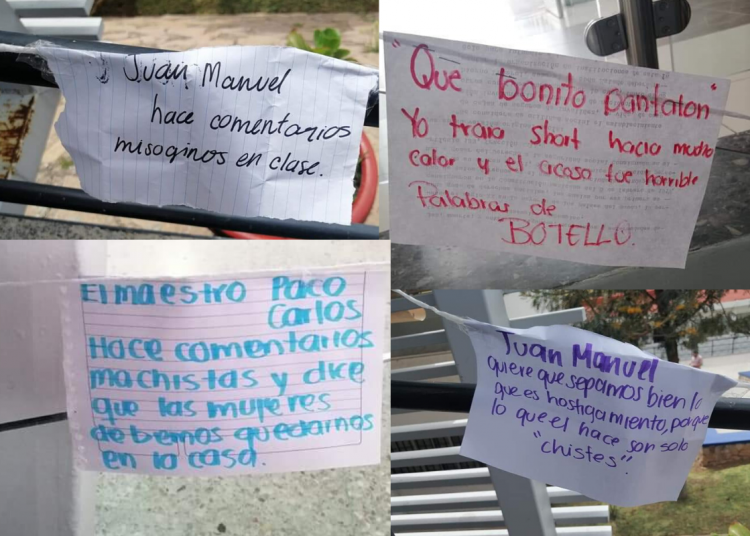 Juan Manuel
hace comentarios
misoginos en clase.
"Que bonito pantalon"
Yo traia short hacia mucho
calor y el acoso fue horrible
Palabras de
BOTELLO.
El maestro Paco
Carlos
Hace comentarios
machistas y dice
que las mujeres
debemos quedarnos
en la casa.
Juan Manuel
quiere que sepamos bien lo
que es hostigamiento, porque
lo que el hace son solo
"chistes".